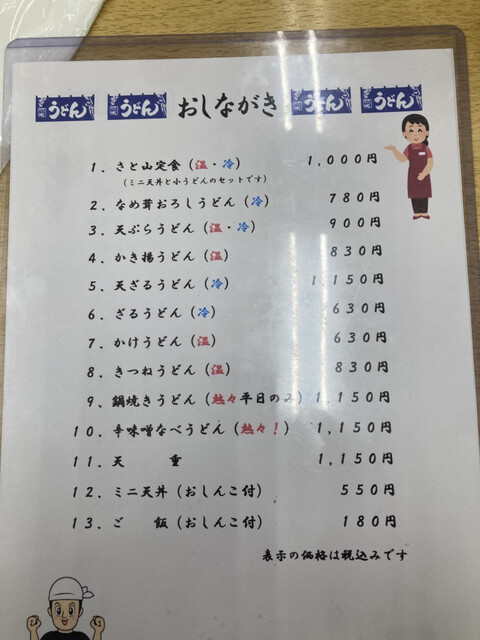 うどん うどん おしながき うどん うどん
1．さと山定食（温・冷） 1,000円
（ミニ天丼と小うどんのセットです）
2．なめ茸おろしうどん（冷） 780円
3．天ぷらうどん（温・冷） 900円
4．かき揚うどん（温） 830円
5．天ざるうどん（冷） 1,150円
6．ざるうどん（冷） 630円
7．かけうどん（温） 630円
8．きつねうどん（温） 830円
9．鍋焼きうどん（熱々平日のみ） 1,150円
10．辛味噌なべうどん（熱々！） 1,150円
11．天　　重 1,150円
12．ミニ天丼（おしんこ付） 550円
13．ご　飯（おしんこ付） 180円
表示の価格は税込みです